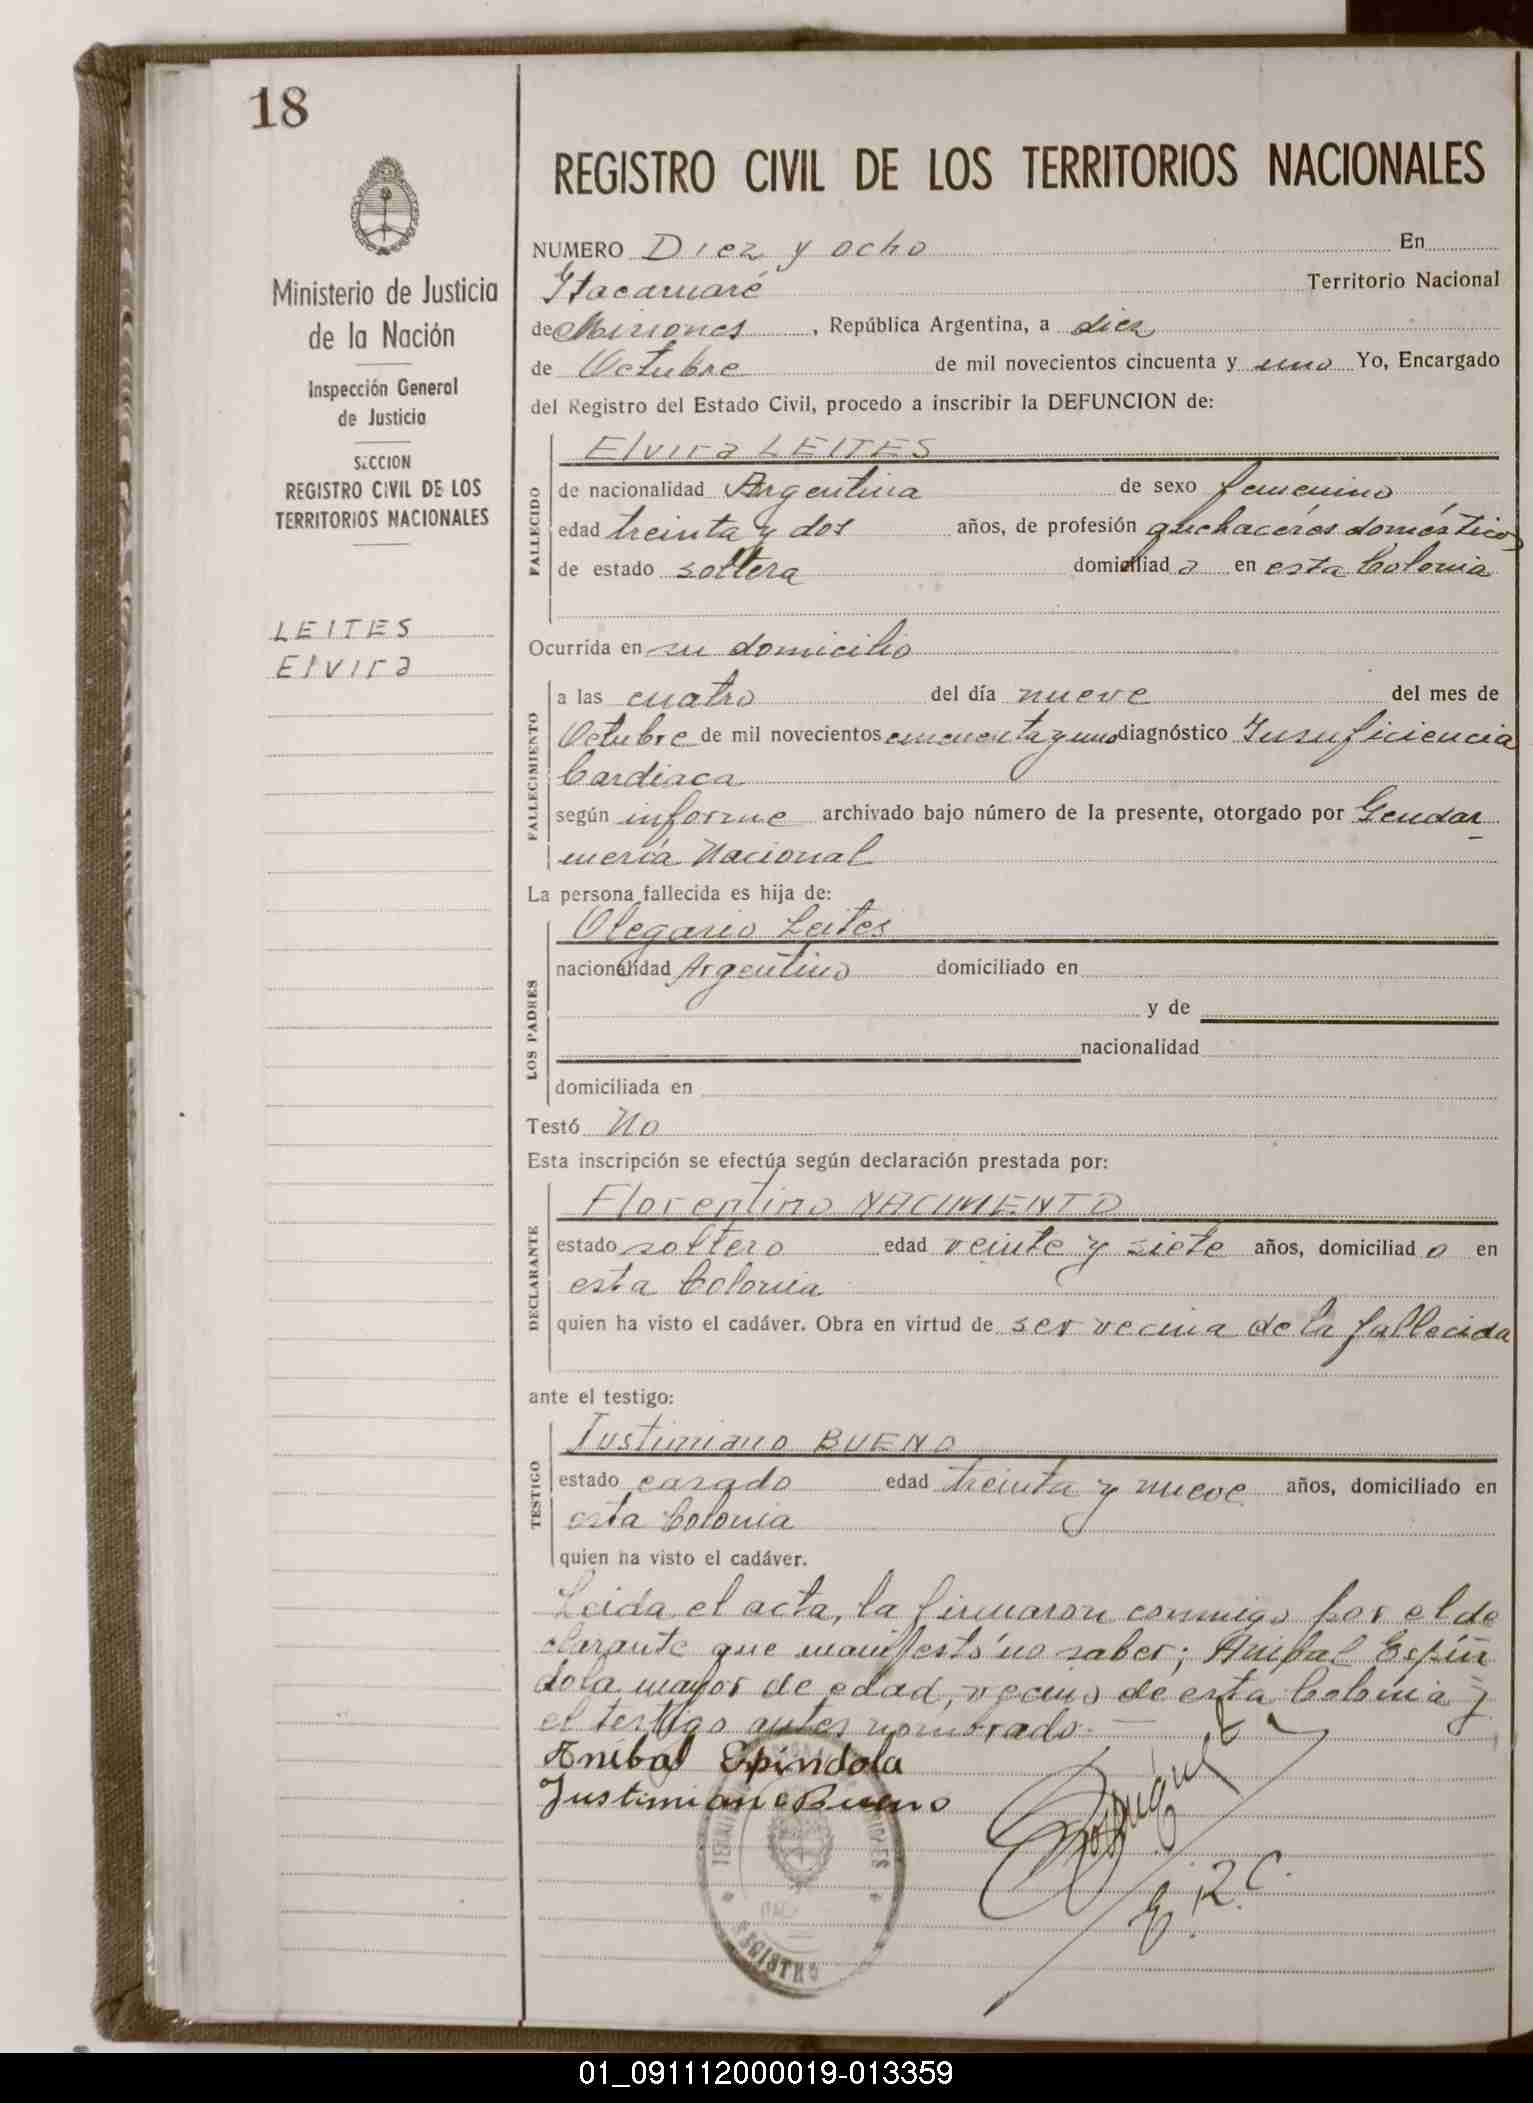 18
Ministerio de Justicia
de la Nación
Inspección General
de Justicia
SECCION
REGISTRO CIVIL DE LOS
TERRITORIOS NACIONALES
LEITES
Elvira
REGISTRO CIVIL DE LOS TERRITORIOS NACIONALES
NUMERO Diez y ocho En
Itacaruaré Territorio Nacional
de Misiones, República Argentina, a diez
de Octubre de mil novecientos cincuenta y uno Yo, Encargado
del Registro del Estado Civil, procedo a inscribir la DEFUNCION de:
FALLECIDO
Elvira LEITES
de nacionalidad Argentina de sexo femenino
edad treinta y dos años, de profesión quehacéres doméstícos
de estado soltera domiciliada en esta Colonia
Ocurrida en su domicilio
FALLECIMIENTO
a las cuatro del día nueve del mes de
Octubre de mil novecientos cincuenta y uno diagnóstico Insuficiencia
Cardiaca
según informe archivado bajo número de la presente, otorgado por Gendar
mería Nacional
La persona fallecida es hija de:
LOS PADRES
Olegario Leites
nacionalidad Argentino domiciliado en
y de
nacionalidad
domiciliada en
Testó No
Esta inscripción se efectúa según declaración prestada por:
DECLARANTE
Florentino NACIMENTO
estado soltero edad veinte y siete años, domiciliado en
esta Colonia
quien ha visto el cadáver. Obra en virtud de ser vecina de la fallecida
ante el testigo:
TESTIGO
Justimiano BUENO
estado casado edad treinta y nueve años, domiciliado en
esta Colonia
quien ha visto el cadáver.
Leida el acta, la firmaron conmigo por el de
clarante que manifestó no saber; Anibal Espín
dola mayor de edad, vecino de esta Colonia y
el testigo antes nombrado.—
Anibal Epindola
Justimiano Bueno
E. R. C.
REGISTRO
01_091112000019-013359